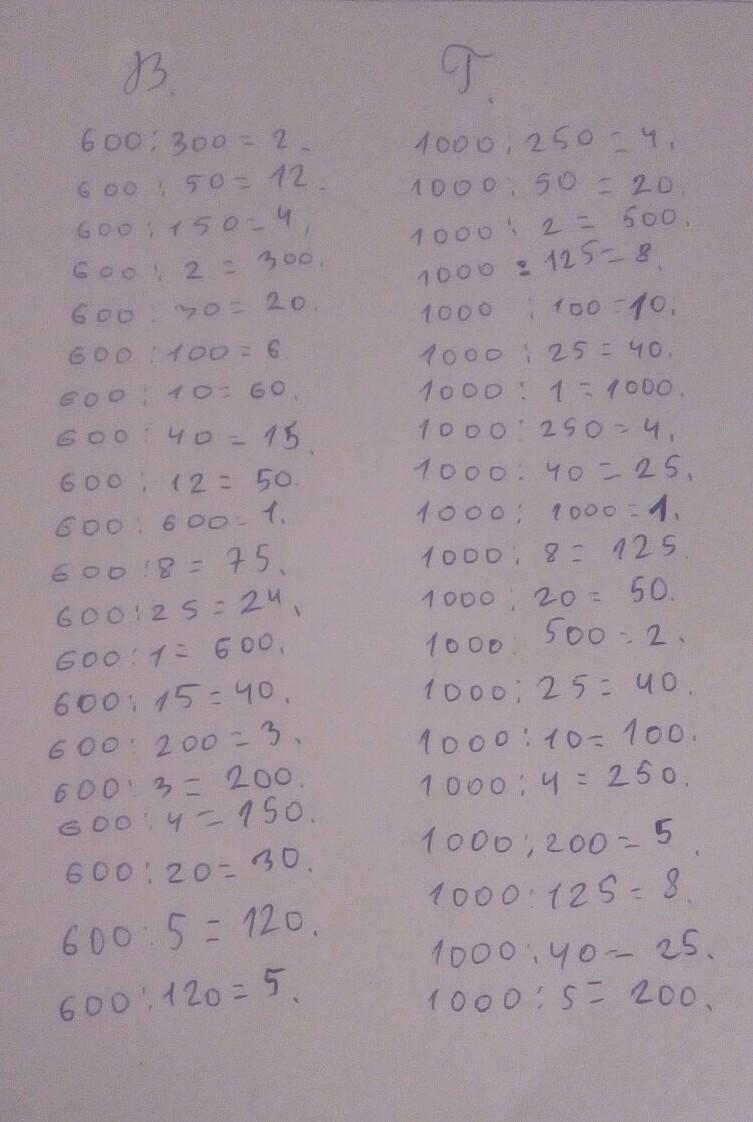 В.
600 : 300 = 2.
600 : 50 = 12.
600 : 150 = 4.
600 : 2 = 300.
600 : 30 = 20.
600 : 100 = 6
600 : 10 = 60.
600 : 40 = 15.
600 : 12 = 50.
600 : 600 = 1.
600 : 8 = 75.
600 : 25 = 24.
600 : 1 = 600.
600 : 15 = 40.
600 : 200 = 3.
600 : 3 = 200.
600 : 4 = 150.
600 : 20 = 30.
600 : 5 = 120.
600 : 120 = 5.
Г.
1000 : 250 = 4.
1000 : 50 = 20.
1000 : 2 = 500.
1000 : 125 = 8.
1000 : 100 = 10.
1000 : 25 = 40.
1000 : 1 = 1000.
1000 : 250 = 4.
1000 : 40 = 25.
1000 : 1000 = 1.
1000 : 8 = 125.
1000 : 20 = 50.
1000 : 500 = 2.
1000 : 25 = 40.
1000 : 10 = 100.
1000 : 4 = 250.
1000 : 200 = 5.
1000 : 125 = 8.
1000 : 40 = 25.
1000 : 5 = 200.